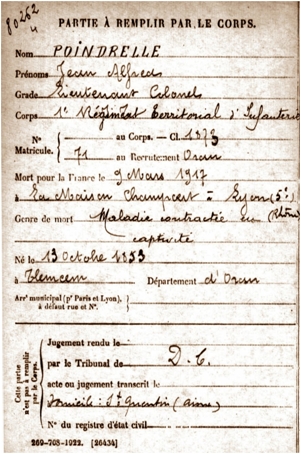 80262
4
PARTIE À REMPLIR PAR LE CORPS.
Nom POINDRELLE
Prénoms Jean Alfred
Grade Lieutenant Colonel
Corps 1e Régiment Territorial d'Infanterie
N° au Corps. — Cl. 1873
Matricule. 71 au Recrutement Oran
Mort pour la France le 9 Mars 1917
à La Maison Lyon (5e)
(Rhône)
Genre de mort Maladie contractée en
captivité
Né le 13 Octobre 1853
à Tlemcem Département d'Oran
Arrt municipal (pr Paris et Lyon),
à défaut rue et N°.
Cette partie
n'est pas à remplir
par le Corps.
Jugement rendu le
par le Tribunal de D.C.
acte ou jugement transcrit le
Domicile : St Quentin (Aisne)
N° du registre d'état civil
269-708-1922. [26434]